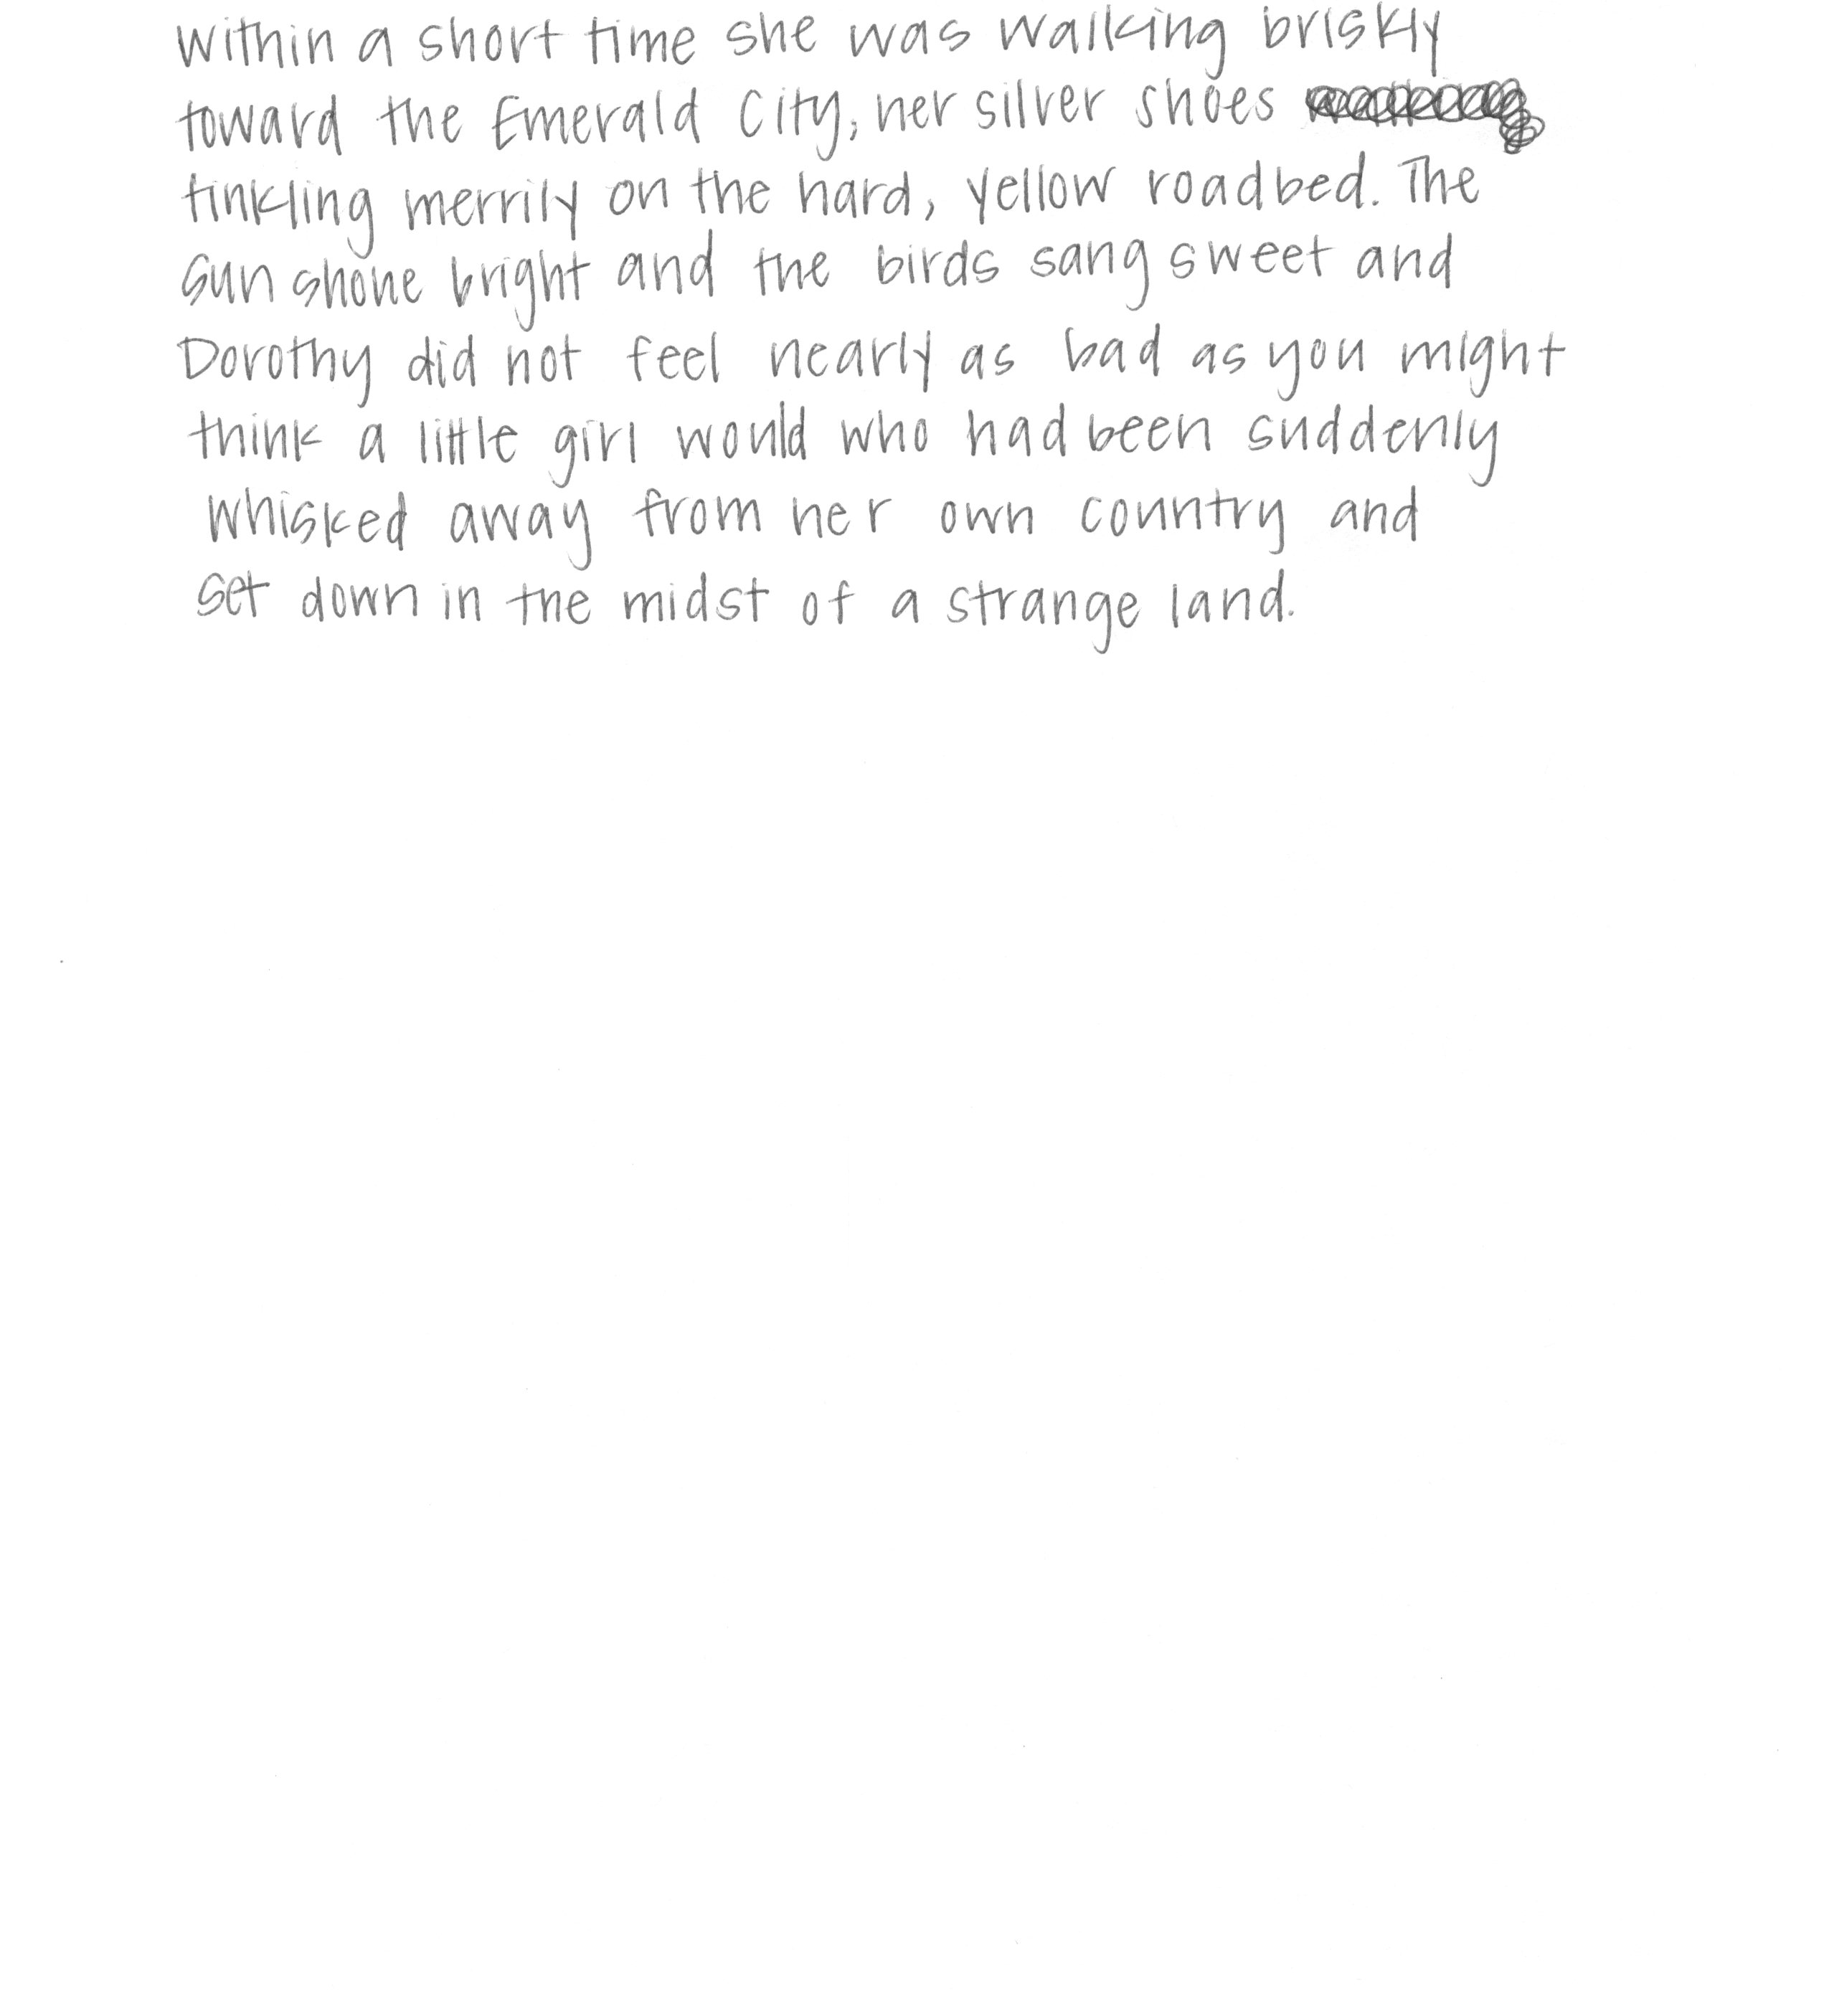 Within a short time she was walking briskly
toward the Emerald City, her silver shoes
tinkling merrily on the hard, yellow roadbed. The
sun shone bright and the birds sang sweet and
Dorothy did not feel nearly as bad as you might
think a little girl would who had been suddenly
whisked away from her own country and
set down in the midst of a strange land.